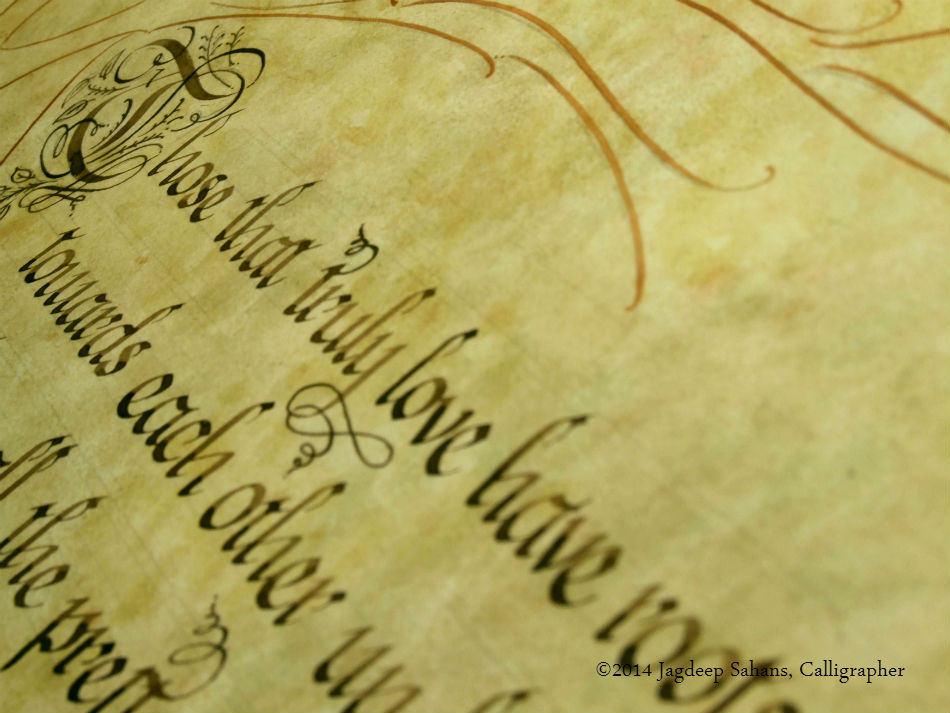 Those that truly love have roots
towards each other
the
©2014 Jagdeep Sahans, Calligrapher